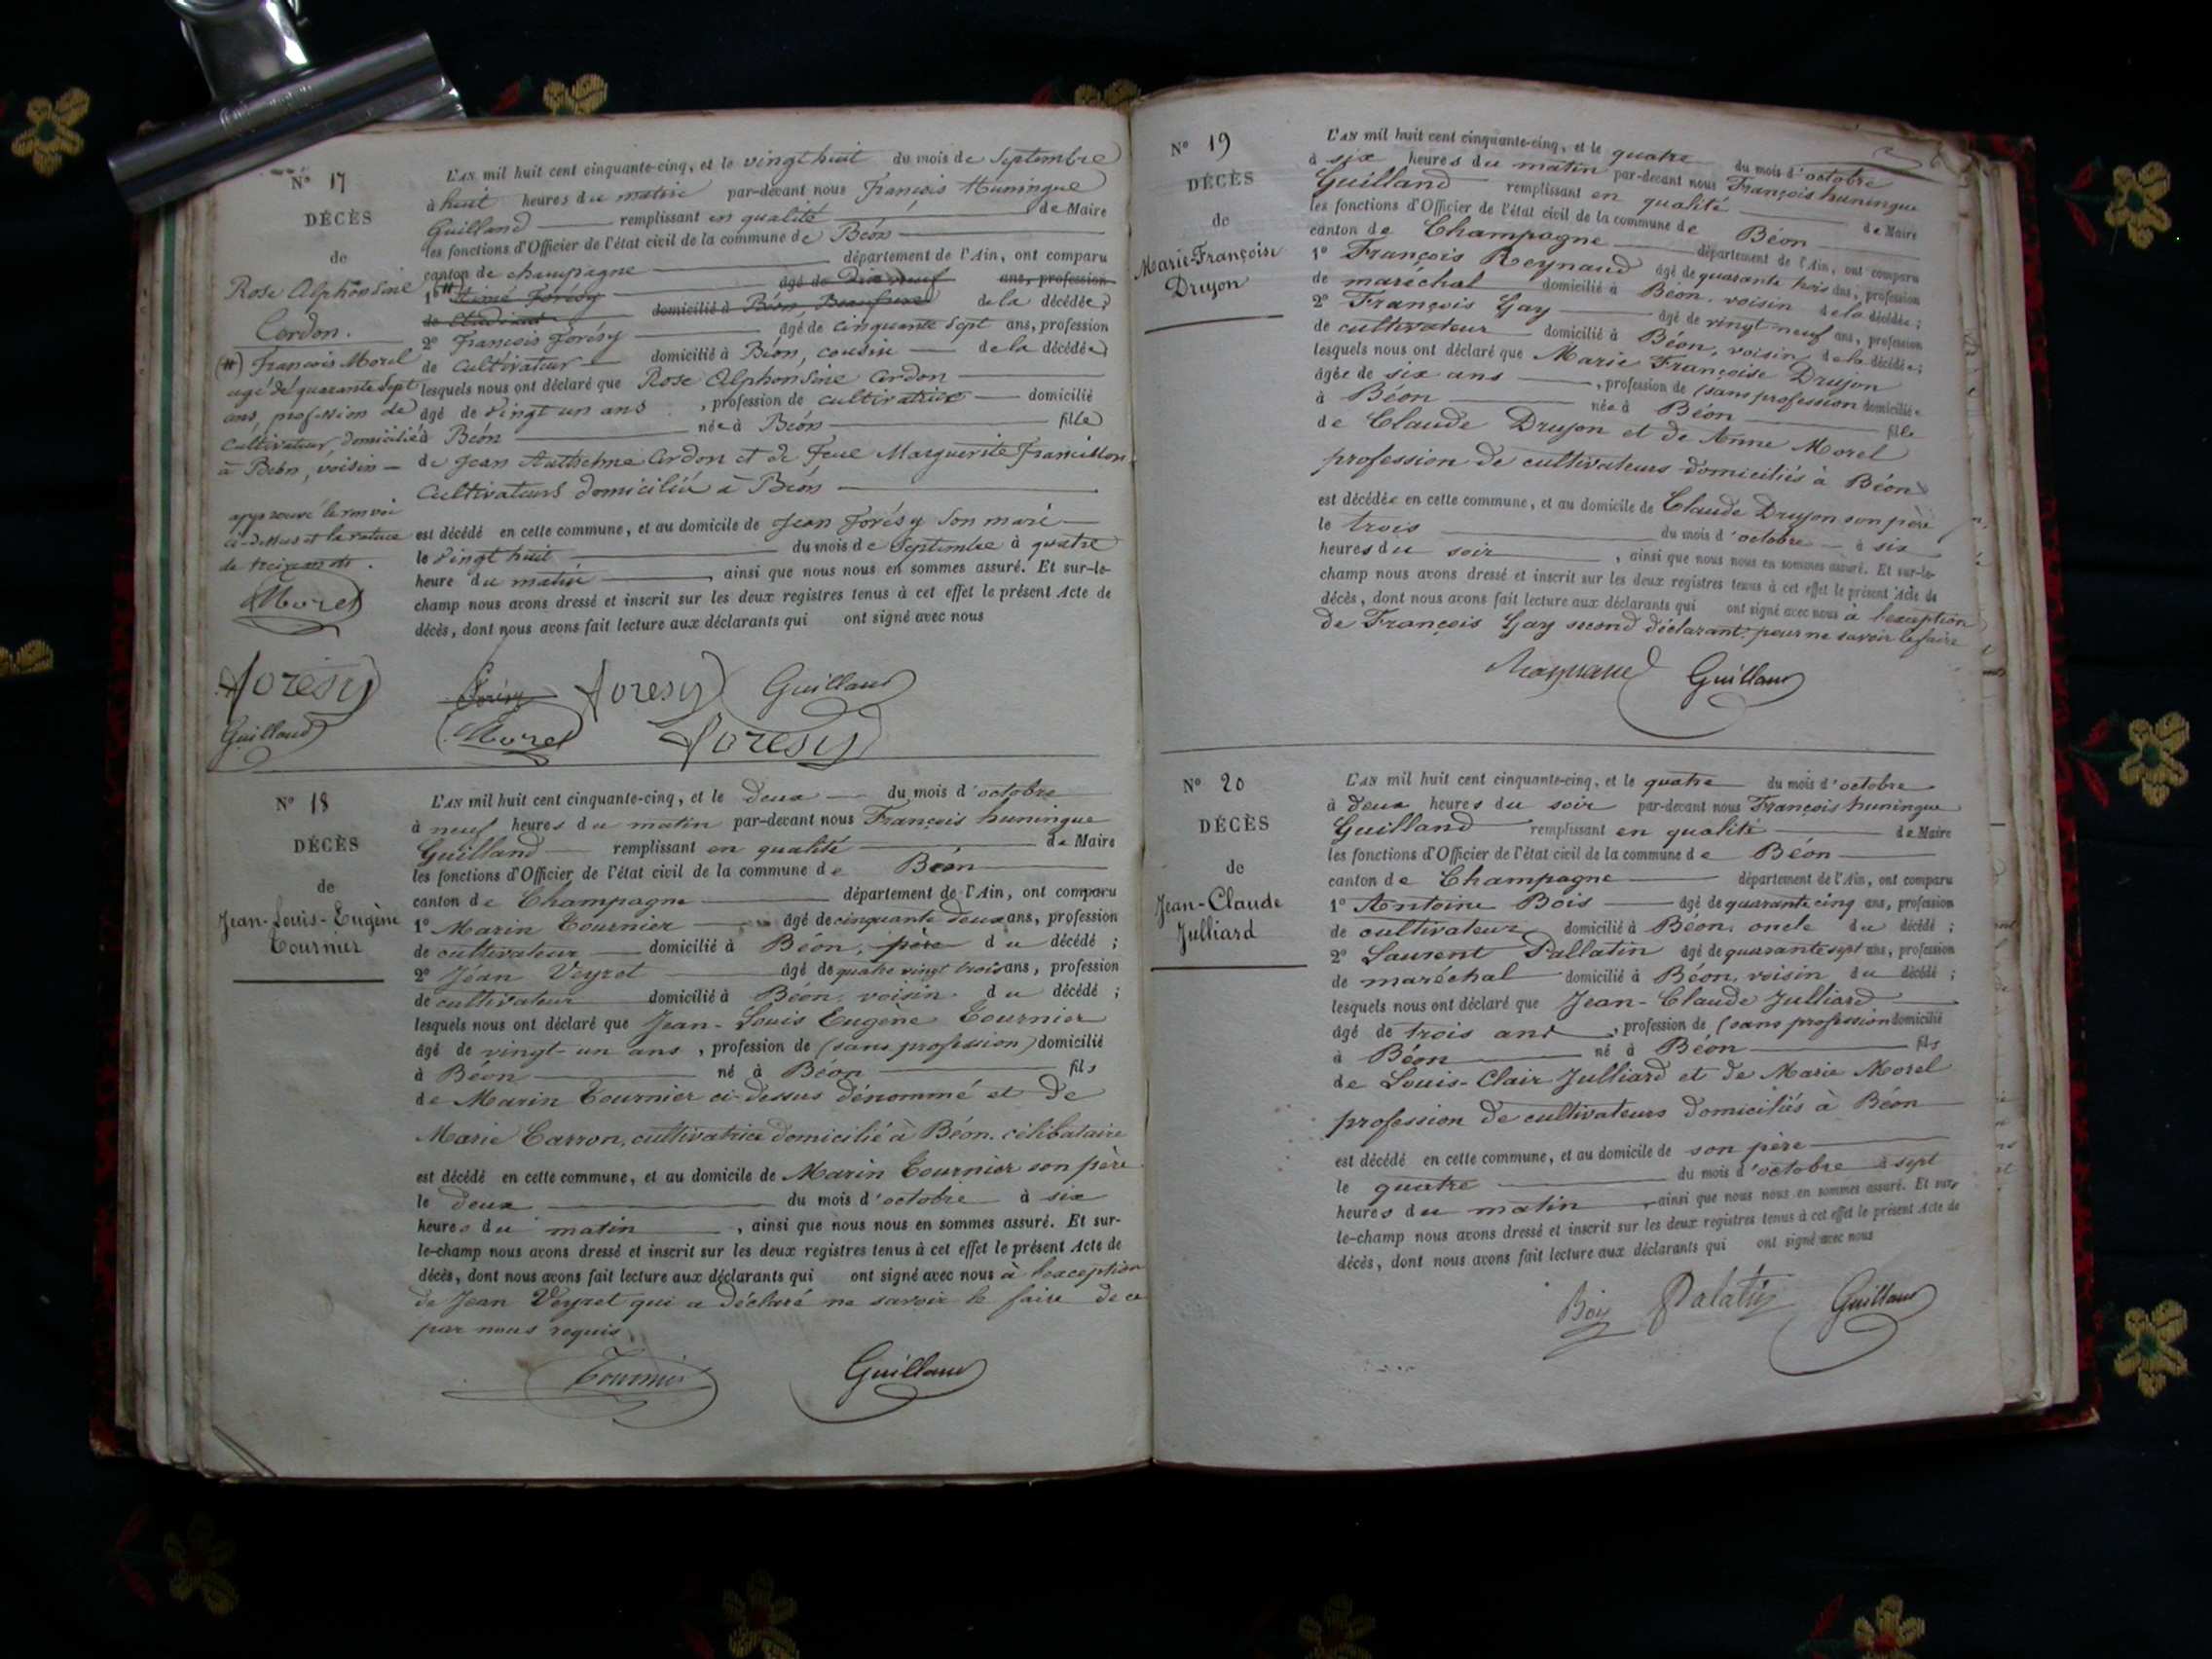 N° 17
DÉCÈS
de
Rose Alphonsine
Cordon.
(#) François Morel
agé de quarante sept
ans, profession de
cultivateur, domicilié
à Béon, voisin —
approuvé le renvoi
ci-dessus et la rature
de treize mots.
Morel
Foresy
Guilland
L'AN mil huit cent cinquante-cinq, et le vingt huit du mois de Septembre
à huit heures du matin par-devant nous François Huningue
Guilland remplissant en qualité de Maire
les fonctions d'Officier de l'état civil de la commune de Béon
canton de champagne département de l'Ain, ont comparu
1° (#) Aimé Forésy âgé de dix neuf ans, profession
de étudiant domicilié à Béon, Beau frère de la décédée;
2° François Forésy âgé de cinquante sept ans, profession
de cultivateur domicilié à Béon, cousin de la décédée;
lesquels nous ont déclaré que Rose Alphonsine Cordon
âgé de vingt un ans, profession de cultivatrice domicilié
à Béon née à Béon fille
de Jean Anthelme Cordon et de feue Marguerite Francillon
cultivateurs domiciliés à Béon
est décédé en cette commune, et au domicile de Jean Forésy son mari
le vingt huit du mois de Septembre à quatre
heure du matin, ainsi que nous nous en sommes assuré. Et sur-le-
champ nous avons dressé et inscrit sur les deux registres tenus à cet effet le présent Acte de
décès, dont nous avons fait lecture aux déclarants qui ont signé avec nous
Forésy Foresy Guilland
Morel Foresy
N° 18
DÉCÈS
de
Jean-Louis-Eugène
Tournier
L'AN mil huit cent cinquante-cinq, et le deux du mois d'octobre
à neuf heures du matin par-devant nous François huningue
Guilland remplissant en qualité de Maire
les fonctions d'Officier de l'état civil de la commune de Béon
canton de Champagne département de l'Ain, ont comparu
1° Marin Tournier âgé de cinquante deux ans, profession
de cultivateur domicilié à Béon, père du décédé;
2° Jean Veyret âgé de quatre vingt trois ans, profession
de cultivateur domicilié à Béon, voisin du décédé;
lesquels nous ont déclaré que Jean-Louis Eugène Tournier
âgé de vingt-un ans, profession de (sans profession) domicilié
à Béon né à Béon fils
de Marin Tournier ci-dessus dénommé et de
Marie Carron, cultivatrice domicilié à Béon. célibataire
est décédé en cette commune, et au domicile de Marin Tournier son père
le deux du mois d'octobre à six
heures du matin, ainsi que nous nous en sommes assuré. Et sur-
le-champ nous avons dressé et inscrit sur les deux registres tenus à cet effet le présent Acte de
décès, dont nous avons fait lecture aux déclarants qui ont signé avec nous à l'exception
de Jean Veyret qui a déclaré ne savoir le faire de ce
par nous requis.
Tournier Guilland
N° 19
DÉCÈS
de
Marie-Françoise
Drujon
L'AN mil huit cent cinquante-cinq, et le quatre du mois d'octobre
à six heures du matin par-devant nous François huningue
Guilland remplissant en qualité de Maire
les fonctions d'Officier de l'état civil de la commune de Béon
canton de Champagne département de l'Ain, ont comparu
1° François Reynaud âgé de quarante trois ans, profession
de maréchal domicilié à Béon, voisin de la décédée;
2° François Gay âgé de vingt neuf ans, profession
de cultivateur domicilié à Béon, voisin de la décédée;
lesquels nous ont déclaré que Marie Françoise Drujon
âgée de six ans, profession de (sans profession domiciliée
à Béon née à Béon fille
de Claude Drujon et de Anne Morel
profession de cultivateurs domiciliés à Béon
est décédée en cette commune, et au domicile de Claude Drujon son père
le trois du mois d'octobre à six
heures du soir, ainsi que nous nous en sommes assuré. Et sur-le-
champ nous avons dressé et inscrit sur les deux registres tenus à cet effet le présent Acte de
décès, dont nous avons fait lecture aux déclarants qui ont signé avec nous à l'exception
de François Gay second déclarant pour ne savoir le faire
Guilland
N° 20
DÉCÈS
de
Jean-Claude
Julliard
L'AN mil huit cent cinquante-cinq, et le quatre du mois d'octobre
à deux heures du soir par-devant nous François huningue
Guilland remplissant en qualité de Maire
les fonctions d'Officier de l'état civil de la commune de Béon
canton de Champagne département de l'Ain, ont comparu
1° Antoine Bois âgé de quarante cinq ans, profession
de cultivateur domicilié à Béon, oncle du décédé;
2° Laurent Pallatin âgé de quarante sept ans, profession
de maréchal domicilié à Béon, voisin du décédé;
lesquels nous ont déclaré que Jean-Claude Julliard
âgé de trois ans, profession de (sans profession domicilié
à Béon né à Béon fils
de Louis-Clair Julliard et de Marie Morel
profession de cultivateurs domiciliés à Béon
est décédé en cette commune, et au domicile de son père
le quatre du mois d'octobre à sept
heures du matin, ainsi que nous nous en sommes assuré. Et sur-
le-champ nous avons dressé et inscrit sur les deux registres tenus à cet effet le présent Acte de
décès, dont nous avons fait lecture aux déclarants qui ont signé avec nous
Bois Palatin Guilland